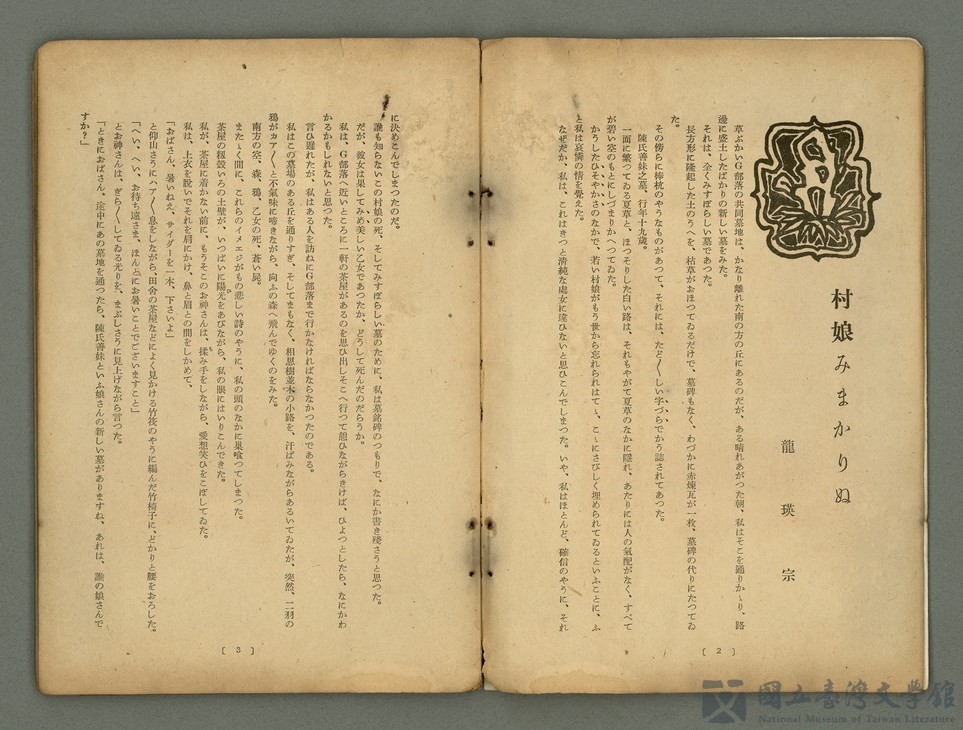 村娘みまかりぬ
龍瑛宗
草ぶかいG部落の共同墓地は、かなり離れた南の方の丘にあるのだが、ある晴れあがつた朝、私はそこを通りかゝり、路
邊に盛土したばかりの新しい墓をみた。
それは、全くみすぼらしい墓であつた。
長方形に隆起した土のうへを、枯草がおほつてゐるだけで、墓碑もなく、わづかに赤煉瓦が一枚、墓碑の代りにたつてゐ
た。
その傍らに棒杭のやうなものがあつて、それには、たど〱しい字づらでかう誌されてあつた。
陳氏善妹之墓、行年十九歲。
一面に繁つてゐる夏草と、ほつそりした白い路は、それもやがて夏草のなかに隱れ、あたりには人の氣配がなく、すべて
が碧い空のもとにしづまりかへつてゐた。
かうしたひそやかさのなかで、若い村娘がもう世から忘れられはてゝ、こゝにさびしく埋められてゐるといふことに、ふ
と私は哀憐の情を覺えた。
なぜだか、私は、これはきつと淸純な處女に違ひないと思ひこんでしまつた。いや、私はほとんど、確信のやうに、それ
[ 2 ]
に決めこんでしまつたのだ。
誰も知らないこの村娘の死、そしてみすぼらしい墓のために、私は墓銘碑のつもりで、なにか書き殘さうと思つた。
だが、彼女は果してみめ美しい乙女であつたか、どうして死んだのだらうか。
私は、G部落へ近いところに一軒の茶屋があるのを思ひ出しそこへ行つて憩ひながらきけば、ひよつとしたら、なにかわ
かるかもしれないと思つた。
言ひ遲れたが、私はある人を訪ねにG部落まで行かなければならなかつたのである。
私はこの墓場のある丘を通りすぎ、そしてまもなく、相思樹並木の小路を、汗ばみながらあるいてゐたが、突然、二羽の
鴉がカア〱と不氣味に啼きながら、向ふの森へ飛んでゆくのをみた。
南方の空、森、鴉、乙女の死、蒼い屍。
またゝく間に、これらのイメエジがもの悲しい詩のやうに、私の頭のなかに巢喰つてしまつた。
茶屋の籾殼いろの土壁が、いつぱいに陽光をあびながら、私の眼にはいりこんできた。
私が、茶屋に着かない前に、もうそこのお神さんは、揉み手をしながら、愛想笑ひをこぼしてゐた。
私は、上衣を脫いでそれを肩にかけ、鼻と眉との間をしかめて、
「おばさん、暑いねえ、サイダーを一本、下さいよ」
と仰山さうにハア〱息をしながら、田舍の茶屋などによく見かける竹筏のやうに編んだ竹椅子に、どかりと腰をおろした。
「へい、へい、お待ち遠さま、ほんとにお暑いことでございますこと」
とお神さんは、ぎら〱してゐる光りを、まぶしさうに見上げながら言つた。
「ときにおばさん、途中にあの墓地を通つたら、陳氏善妹といふ娘さんの新しい墓がありますね、あれは、誰の娘さんで
すか？」
[ 3 ]
國立臺灣文學館
National Museum of Taiwan Literature